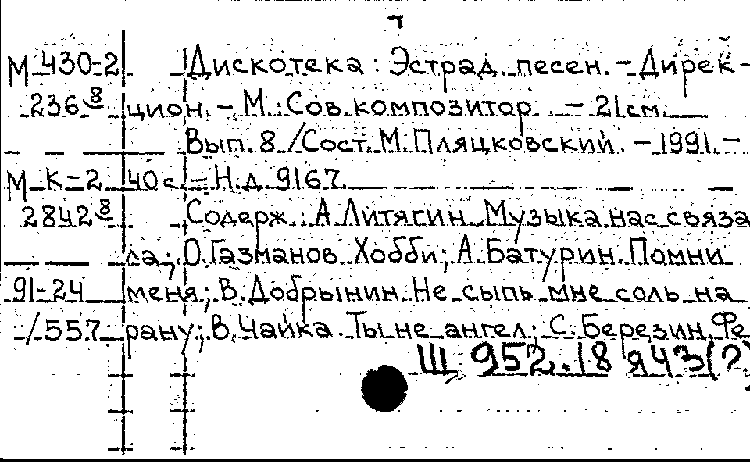 М 430-2 Дискотека : Эстрад. песен. – Дирек-
236 8 цион. – М. : Сов. композитор. – 21 см.
Вып. 8 / Сост. М. Пляцковский. – 1991. –
М К-2 40 с. – Н.д. 9167.
2842 8 Содерж.: А. Литягин. Музыка нас связа
ла; О. Газманов. Хобби; А. Батурин. Помни
91-24 меня; В. Добрынин. Не сыпь мне соль на
/557 рану; В. Чайка. Ты не ангел; С. Березин. Фе
Щ 952.18 я43(2)